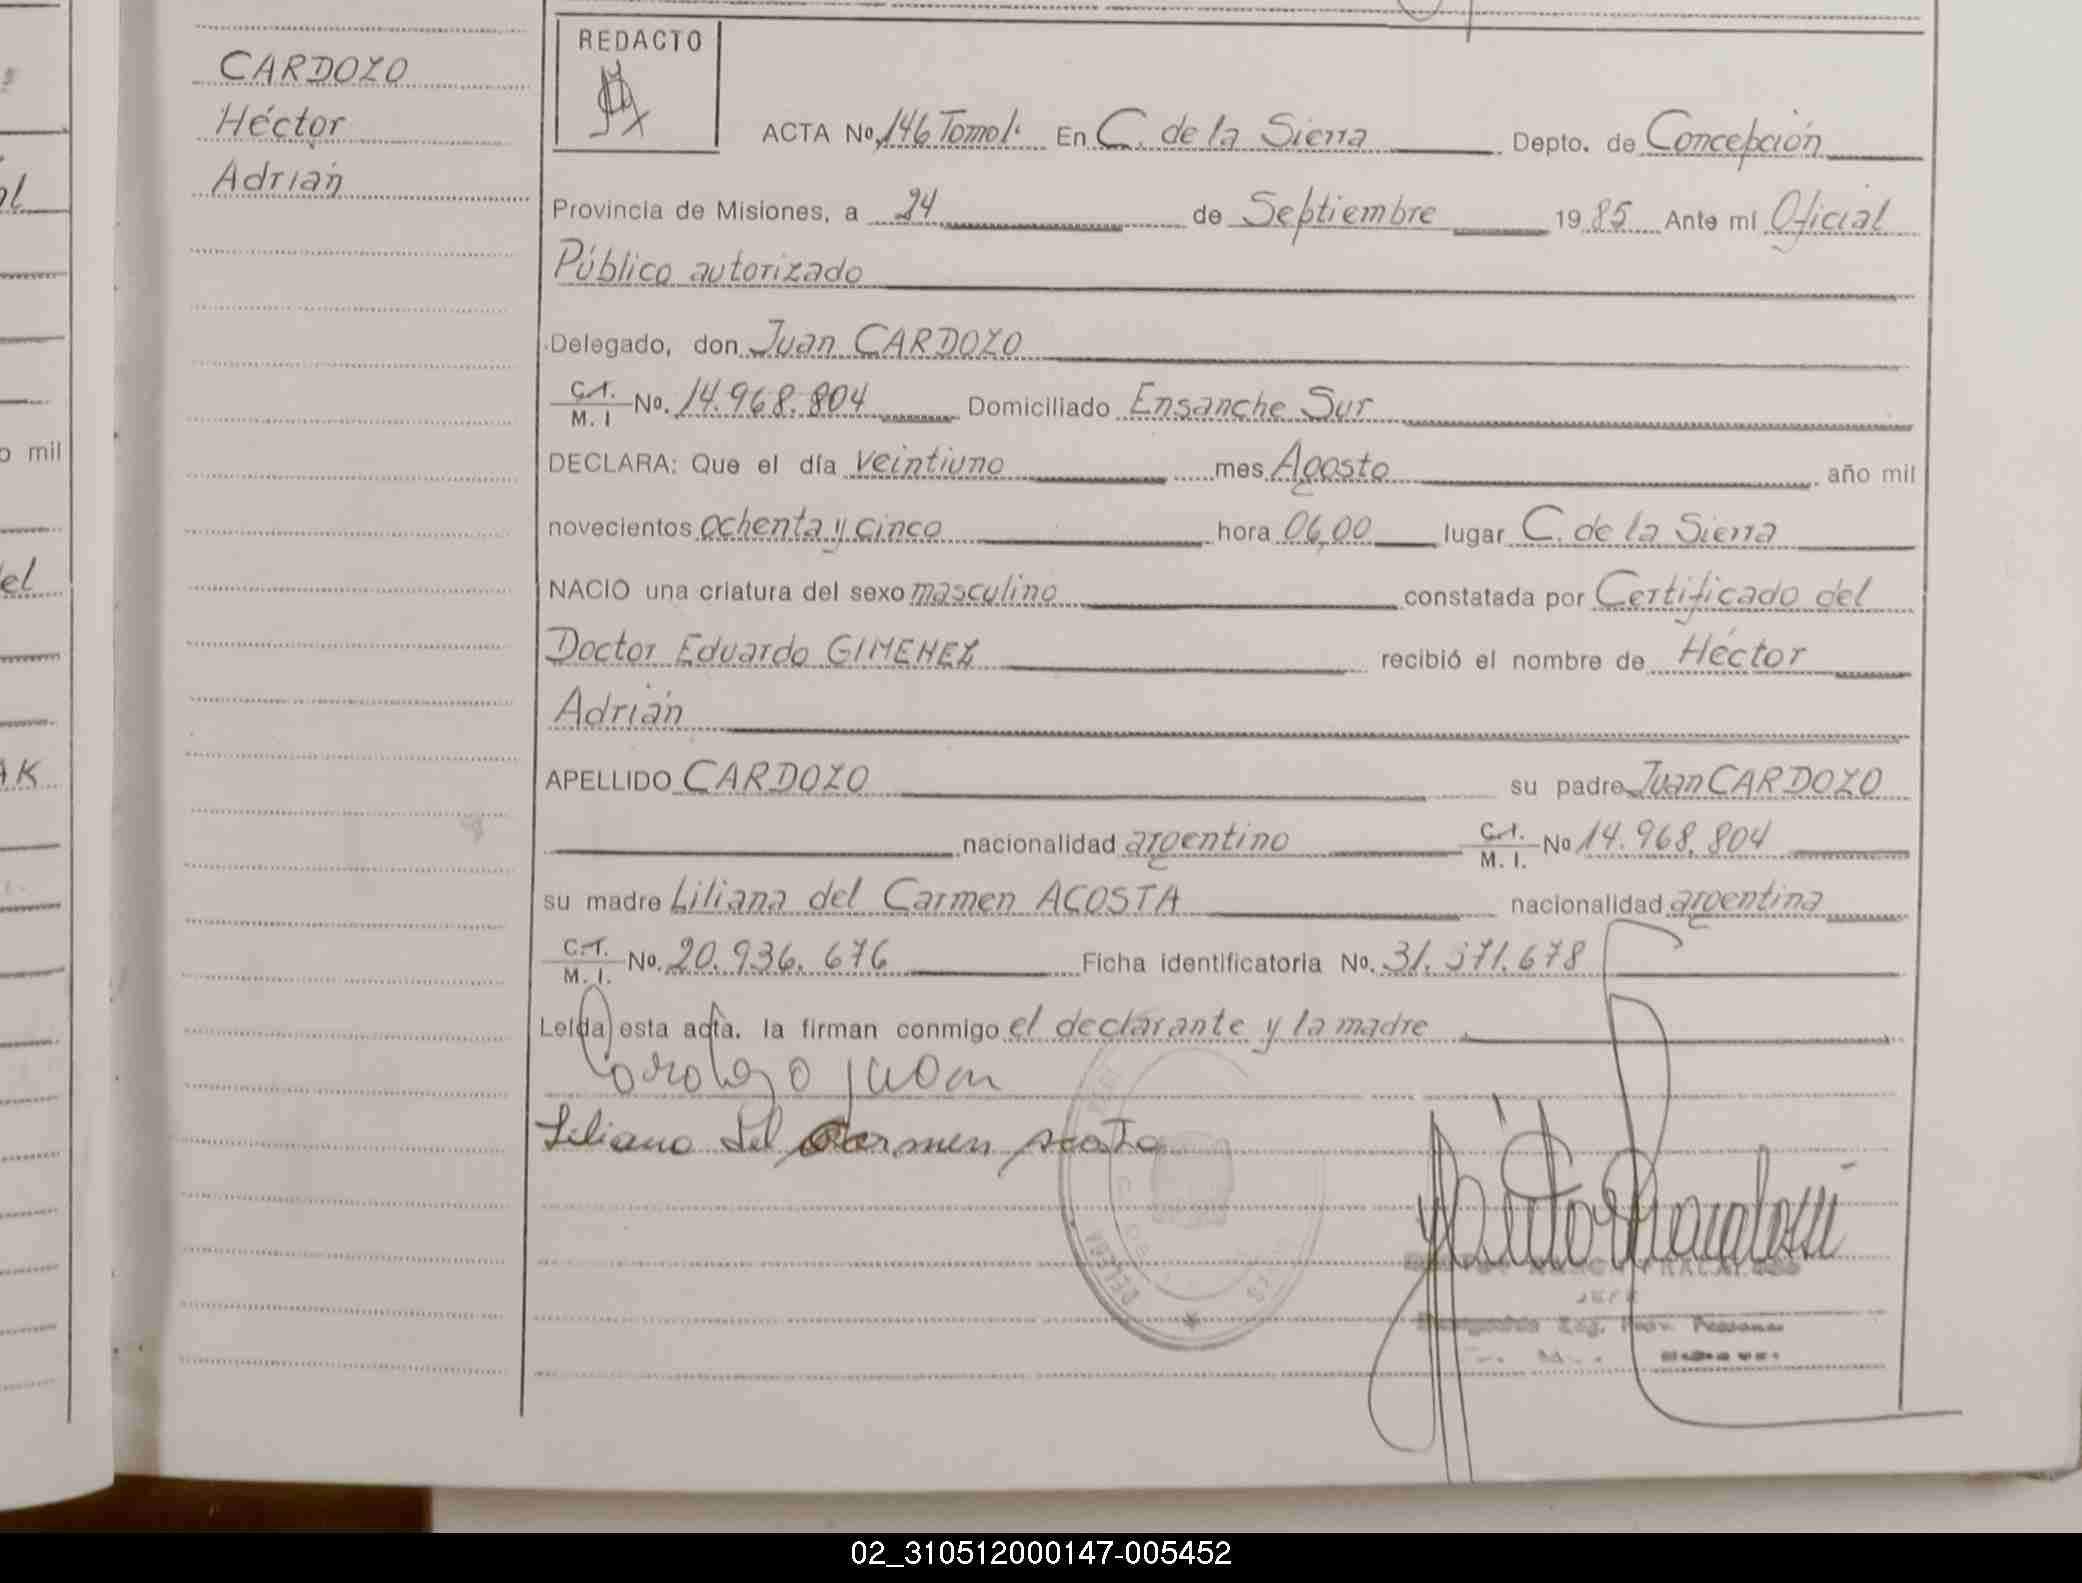 CARDOZO
Héctor
Adrián
REDACTO
ACTA No. 146 Tomo I. En C. de la Sierra Depto. de Concepción
Provincia de Misiones, a 24 de Septiembre 1985 Ante mi Oficial
Público autorizado
Delegado, don Juan CARDOZO
C.I. M. I No. 14.968.804 Domiciliado Ensanche Sur
DECLARA: Que el día veintiuno mes Agosto año mil
novecientos ochenta y cinco hora 06,00 lugar C. de la Sierra
NACIO una criatura del sexo masculino constatada por Certificado del
Doctor Eduardo GIMENEZ recibió el nombre de Héctor
Adrián
APELLIDO CARDOZO su padre Juan CARDOZO
nacionalidad argentino C.I. M. I. No 14.968.804
su madre Liliana del Carmen ACOSTA nacionalidad argentina
C.I. M. I. No. 20.936.676 Ficha identificatoria No. 31.571.678
Leída esta acta. la firman conmigo el declarante y la madre
Cardozo Juan
Liliana del Carmen Acosta
JEFE
o mil
el
AK
02_310512000147-005452